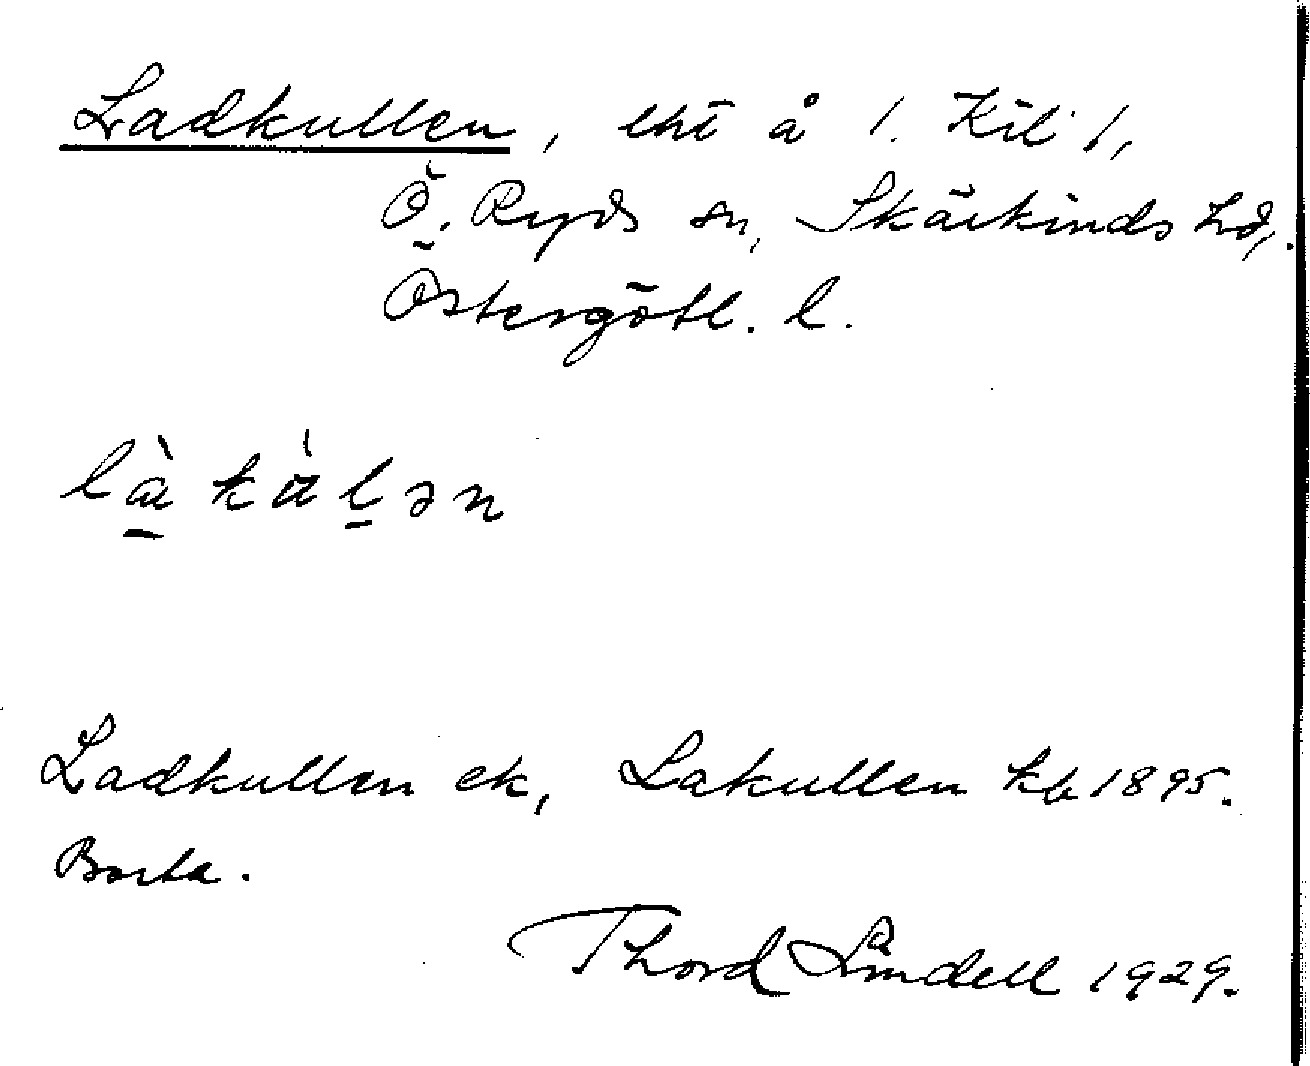 Ladkullen, lht å 1. Kil 1,
Ö. Ryds sn, Skärkinds hd,
Östergötl. l.
Ladkullen ek, Lakullen kb 1895.
Borta.
Thord Lindell 1929.